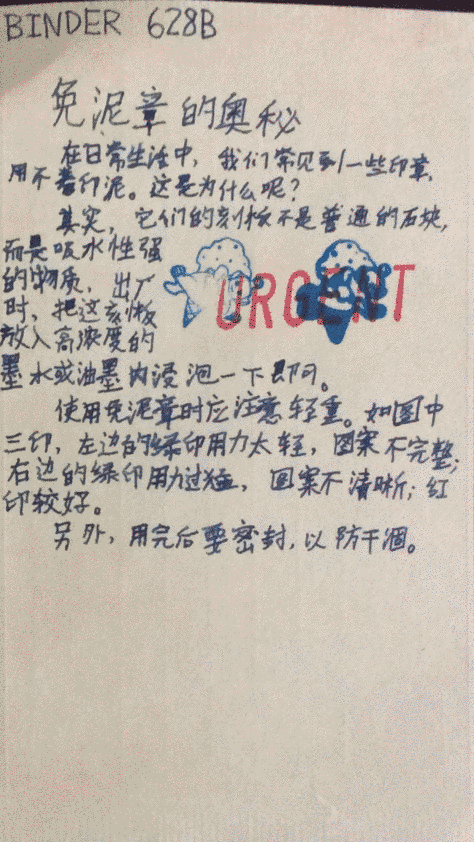 BINDER 628B
免泥章的奥秘
在日常生活中，我们常见到一些印章，
用不着印泥。这是为什么呢？
其实，它们的刻板不是普通的石块，
而是吸水性强
的物质，出厂
时，把这刻板
放入高浓度的
URGENT
墨水或油墨内浸泡一下即可。
使用免泥章时应注意轻重。如图中
三印，左边的绿印用力太轻，图案不完整；
右边的绿印用力过猛，图案不清晰；红
印较好。
另外，用完后要密封，以防干涸。